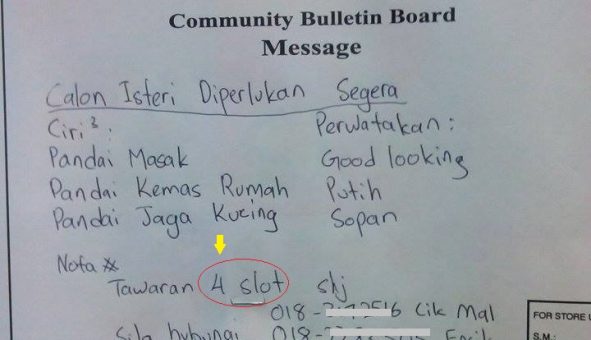 Community Bulletin Board
Message
Calon Isteri Diperlukan Segera
Ciri²:
Perwatakan:
Pandai Masak
Good looking
Pandai Kemas Rumah
Putih
Pandai Jaga Kucing
Sopan
Nota *
Tawaran 4 slot shj
018- 516 Cik Mal
Sila hubungi 018-
FOR STORE
S.M: